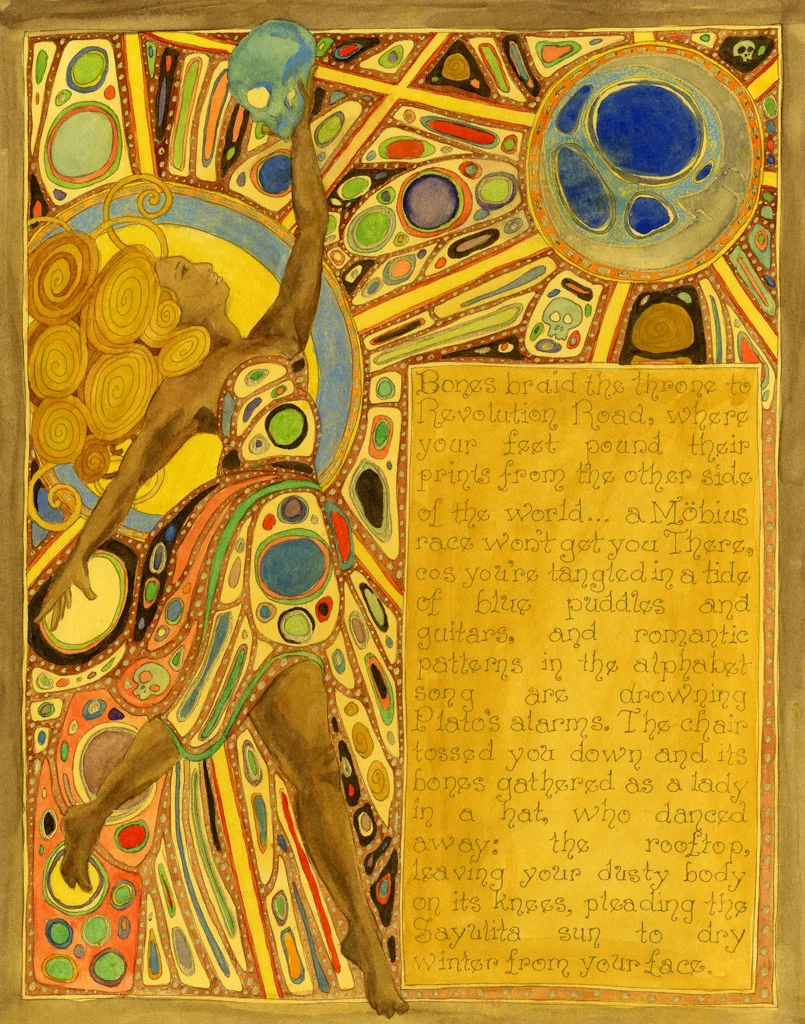 Bones braid the throne to
Revolution Road, where
your feet pound their
prints from the other side
of the world... a Möbius
race won't get you There,
cos you're tangled in a tide
of blue puddles and
guitars, and romantic
patterns in the alphabet
song are drowning
Plato's alarms. The chair
tossed you down and its
bones gathered as a lady
in a hat, who danced
away: the rooftop,
leaving your dusty body
on its knees, pleading the
Sayulita sun to dry
winter from your face.